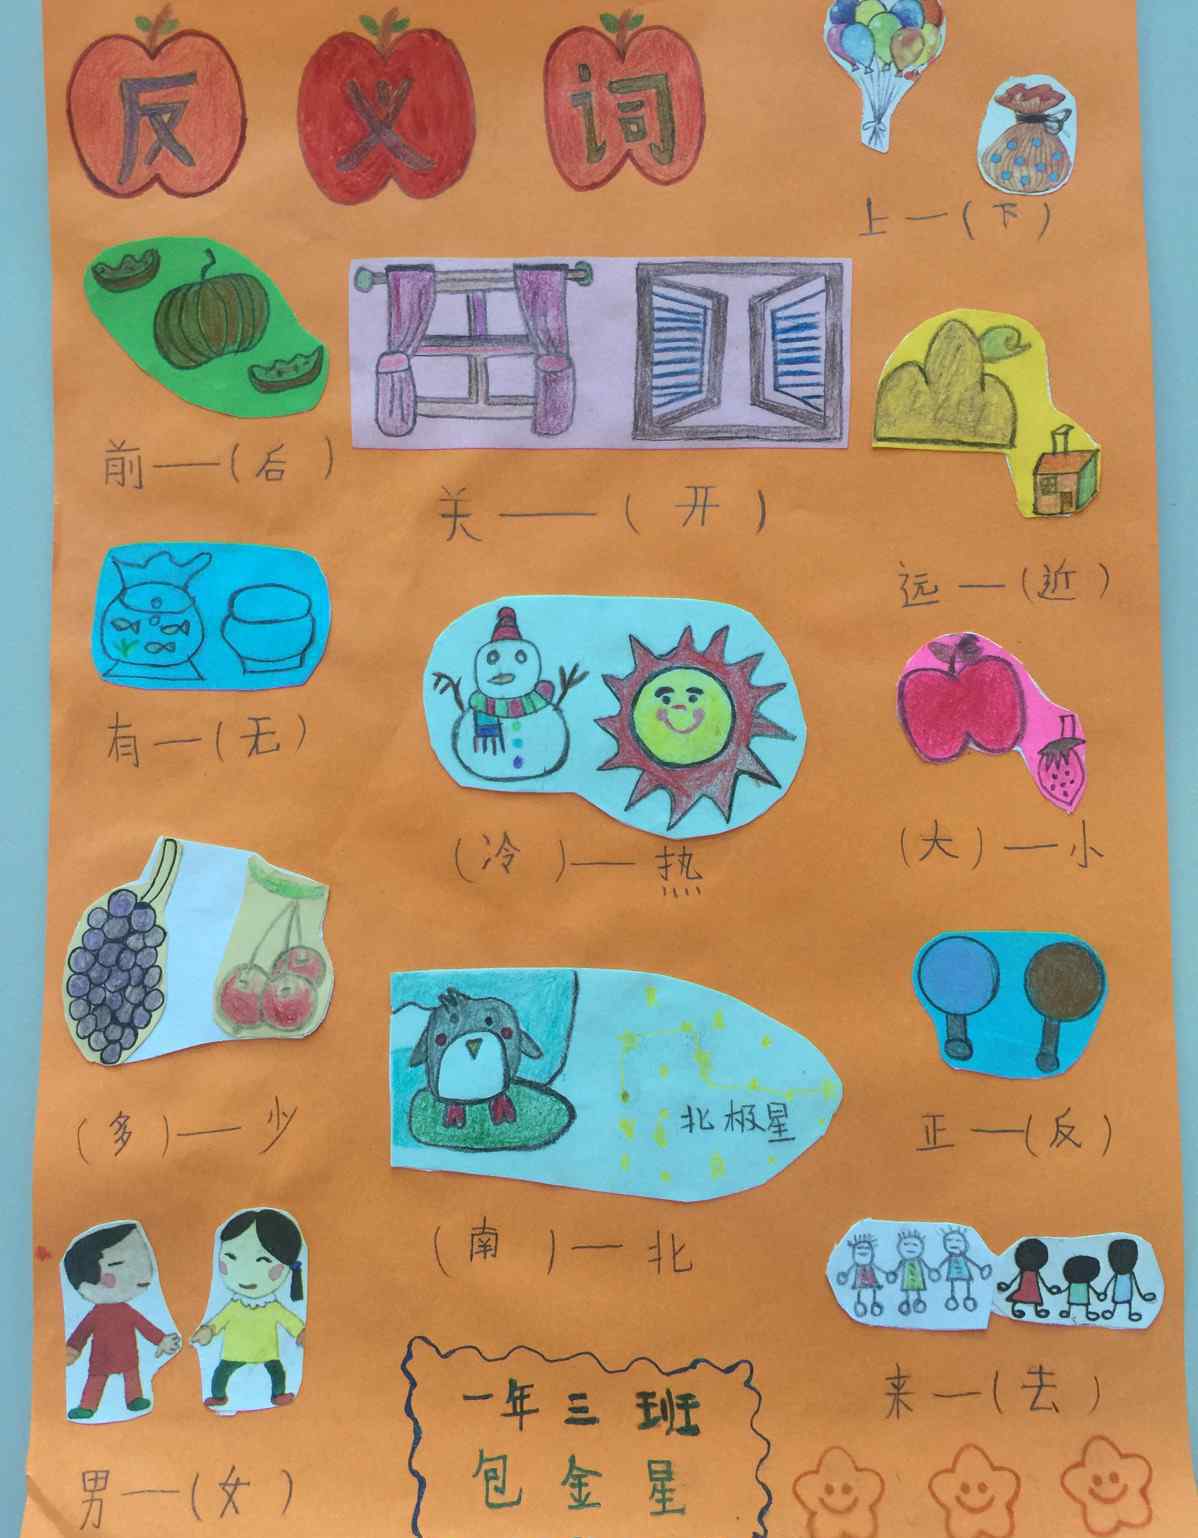 反义词
上—(下)
前—(后)
关—(开)
远—(近)
有—(无)
(冷)—热
(大)—小
北极星
(多)—少
正—(反)
(南)—北
来—(去)
男—(女)
一年三班
包金星